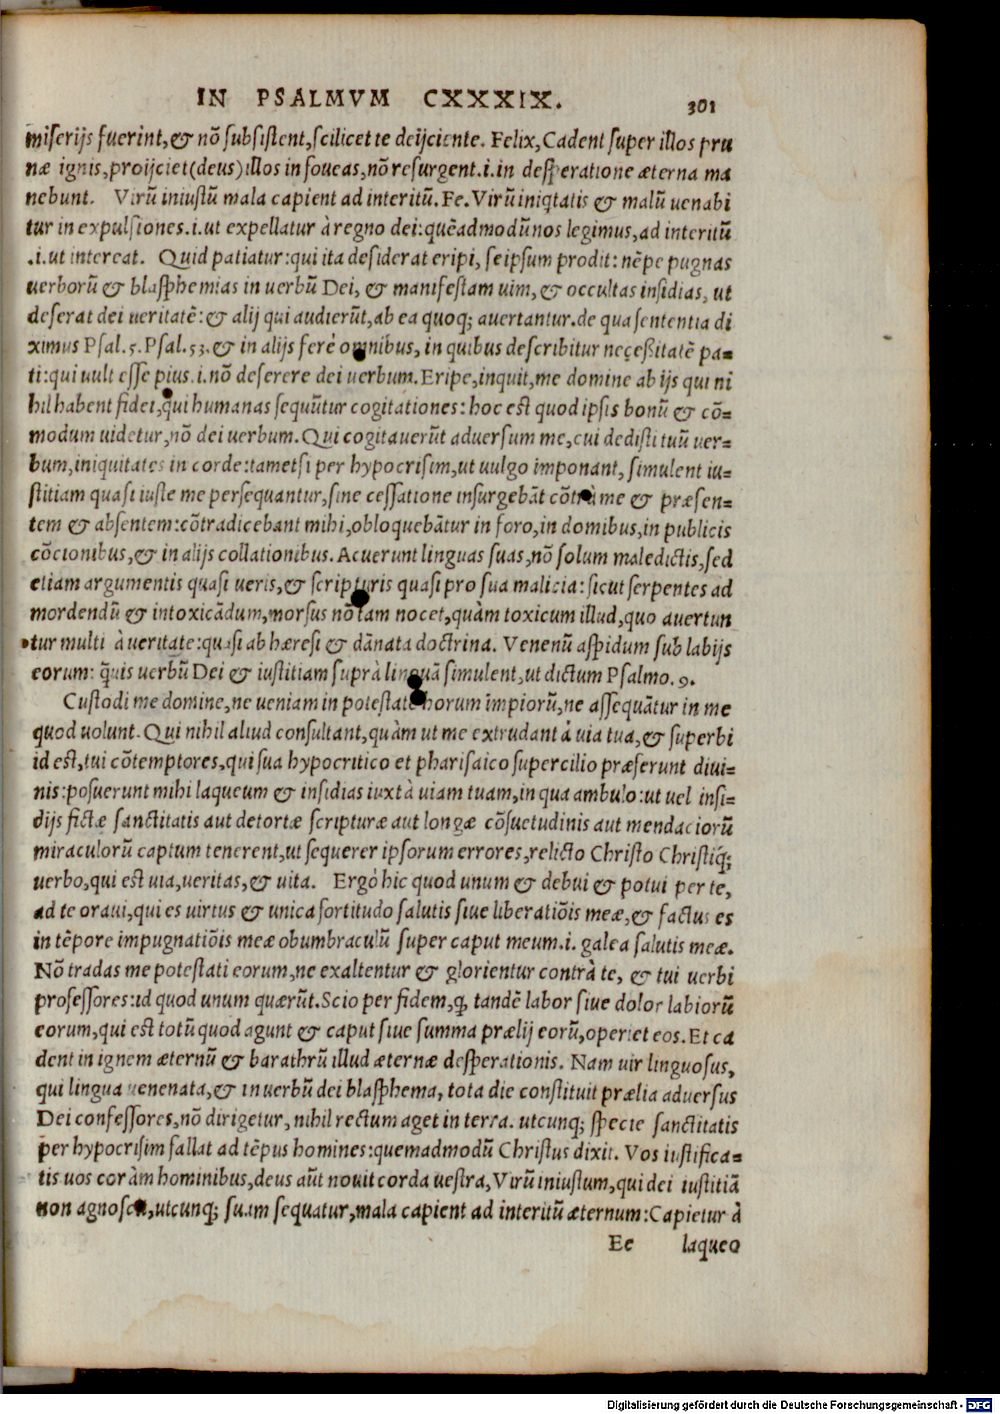 IN PSALMVM CXXXIX. 301
miserijs fuerint, & nõ subsistent, scilicet te deijciente. Felix, Cadent super illos pru
næ ignis, proijciet (deus) illos in foueas, nõ resurgent .i. in desperatione æterna ma
nebunt. Virũ iniustũ mala capient ad interitũ. Fe. Virũ iniqtatis & malũ uenabi
tur in expulsiones .i. ut expellatur à regno dei: quẽadmodũ nos legimus, ad interitũ
.i. ut intereat. Quid patiatur: qui ita desiderat eripi, seipsum prodit: nẽpe pugnas
uerborũ & blasphemias in uerbũ Dei, & manifestam uim, & occultas insidias, ut
deserat dei ueritatẽ: & alij qui audierũt, ab ea quoq; auertantur. de qua sententia di
ximus Psal. 5. Psal. 53. & in alijs ferè omnibus, in quibus describitur neceßitatẽ pa=
ti: qui uult esse pius .i. nõ deserere dei uerbum. Eripe, inquit, me domine ab ijs qui ni
hil habent fidei, qui humanas sequũtur cogitationes: hoc est quod ipsis bonũ & cõ=
modum uidetur, nõ dei uerbum. Qui cogitauerũt aduersum me, cui dedisti tuũ uer=
bum, iniquitates in corde: tametsi per hypocrisim, ut uulgo imponant, simulent iu=
stitiam quasi iuste me persequantur, sine cessatione insurgebãt cõtrà me & præsen=
tem & absentem: cõtradicebant mihi, obloquebãtur in foro, in domibus, in publicis
cõcionibus, & in alijs collationibus. Acuerunt linguas suas, nõ solum maledictis, sed
etiam argumentis quasi ueris, & scripturis quasi pro sua malicia: sicut serpentes ad
mordendũ & intoxicãdum, morsus nõ tam nocet, quàm toxicum illud, quo auertun
tur multi à ueritate: quasi ab hæresi & dãnata doctrina. Venenũ aspidum sub labijs
eorum: q̃uis uerbũ Dei & iustitiam suprà linguã simulent, ut dictum Psalmo. 9.
Custodi me domine, ne ueniam in potestatẽ horum impiorũ, ne assequãtur in me
quod uolunt. Qui nihil aliud consultant, quàm ut me extrudant à uia tua, & superbi
id est, tui cõtemptores, qui sua hypocritico et pharisaico supercilio præserunt diui=
nis: posuerunt mihi laqueum & insidias iuxtà uiam tuam, in qua ambulo: ut uel insi=
dijs fictæ sanctitatis aut detortæ scripturæ aut longæ cõsuetudinis aut mendaciorũ
miraculorũ captum tenerent, ut sequerer ipsorum errores, relicto Christo Christiq́;
uerbo, qui est uia, ueritas, & uita. Ergò hic quod unum & debui & potui per te,
ad te oraui, qui es uirtus & unica fortitudo salutis siue liberatiõis meæ, & factus es
in tẽpore impugnatiõis meæ obumbraculũ super caput meum .i. galea salutis meæ.
Nõ tradas me potestati eorum, ne exaltentur & glorientur contrà te, & tui uerbi
professores: id quod unum quærũt. Scio per fidem, q, tandẽ labor siue dolor labiorũ
eorum, qui est totũ quod agunt & caput siue summa prælij eorũ, operiet eos. Et ca
dent in ignem æternũ & barathrũ illud æternæ desperationis. Nam uir linguosus,
qui lingua uenenata, & in uerbũ dei blasphema, tota die constituit prælia aduersus
Dei confessores, nõ dirigetur, nihil rectum aget in terra. utcunq; specie sanctitatis
per hypocrisim fallat ad tẽpus homines: quemadmodũ Christus dixit. Vos iustifica=
tis uos coràm hominibus, deus aũt nouit corda uestra, Virũ iniustum, qui dei iustitiã
non agnoscit, utcunq; suam sequatur, mala capient ad interitũ æternum: Capietur à
Ee laqueo
Digitalisierung gefördert durch die Deutsche Forschungsgemeinschaft - DFG